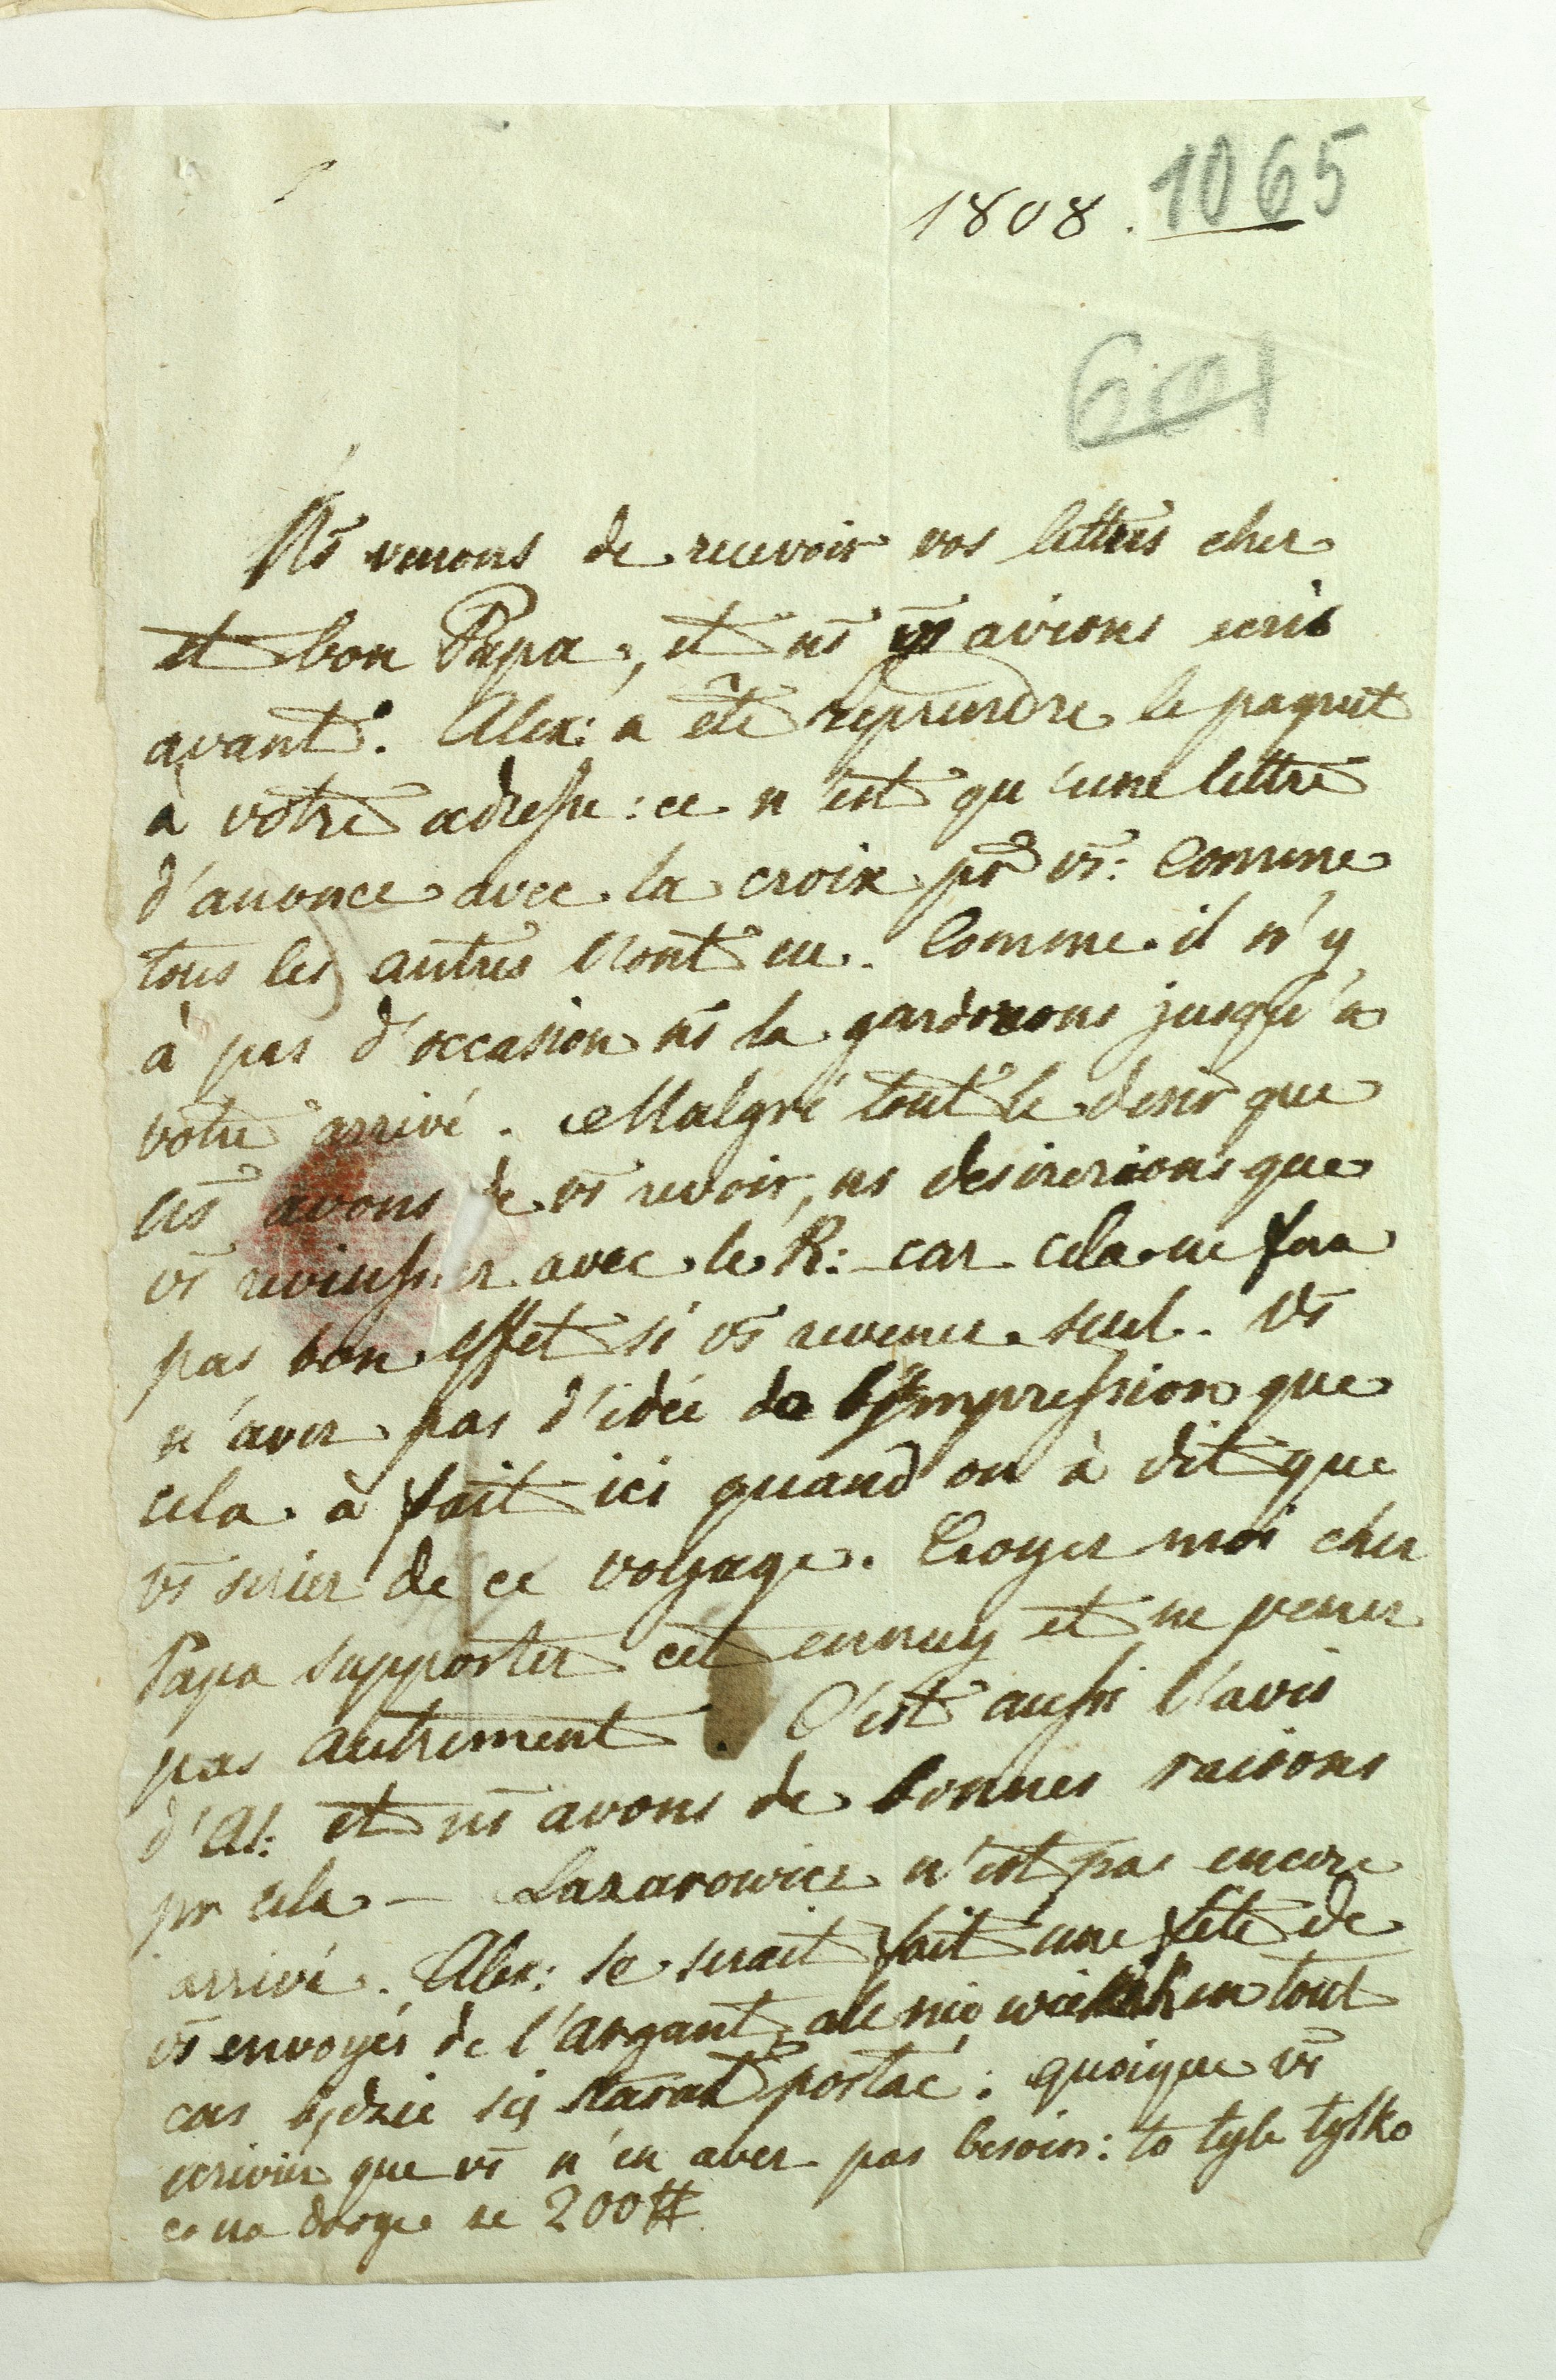 1808. 1065
601
Ns venons de recevoir vos lettres cher
et bon Papa, et ns vs avions ecris
avant. Alex: a été reprendre le paquet
à votre adresse: ce n'est qu'une lettre
d'anonce avec la croix pr vs: Comme
tous les autres l'ont eu. Comme il n'y
à pas d'occasion ns la garderons jusqu'a
votre arrivé. Malgré tout le desir que
ns avons de vs revoir, ns desirerions que
vs revinssiez avec le R: car cela ne fera
pas bon effet si vs revenez seul. Vs
n'avez pas d'idée de l'impression que
cela à fait ici quand on à dit que
vs seriez de ce voyage. Croyez moi cher
Papa supportez cet ennuy et ne venez
pas autrement. C'est aussi l'avis
d'Al: et ns avons de bonnes raisons
pr cela – Lazarowicz n'est pas encore
arrivé. Alex: se serait fait une fête de
vs envoyés de l'argant, ale nie wie en tout
cas będzie się starał postać: quoique vs
ecriviez que vs n'en avez pas besoin: to tyle tylko
co na drogę ze 200#